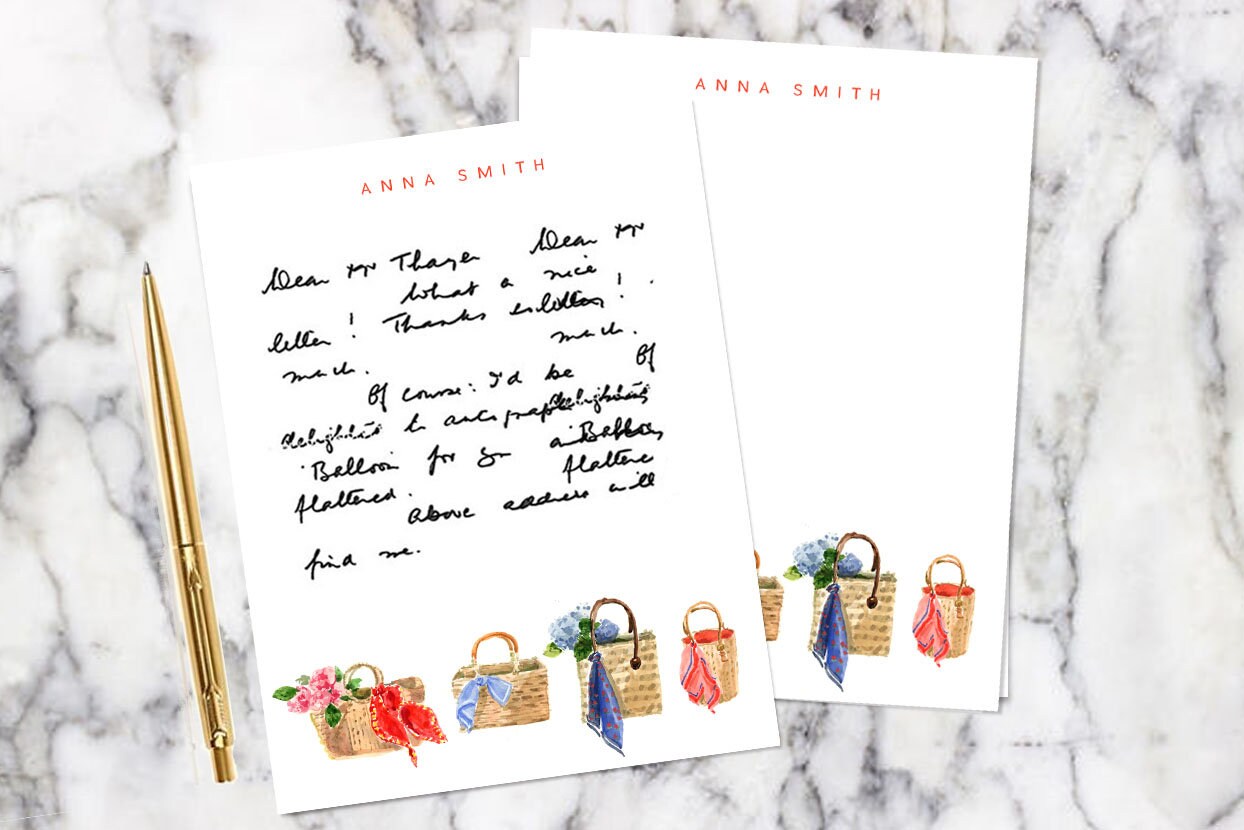 ANNA SMITH
Dear Mr Thayer Dear Mr
What a nice
letter! Thanks letter!
much. much.
Of course: I'd be Of
delighted to autograph delighted
'Balloon for you Balloon
flattered. flattere
Above address will
find me.
ANNA SMITH